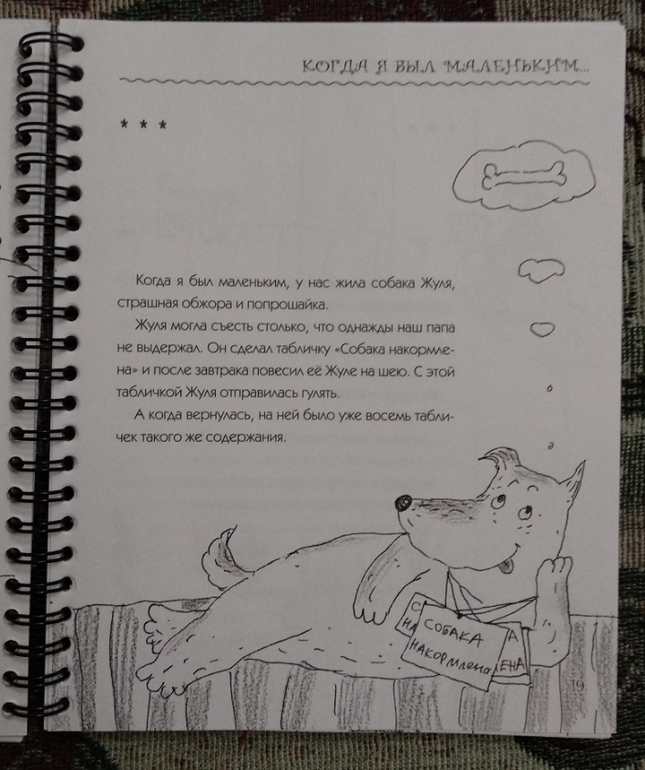 КОГДА Я БЫЛ МАЛЕНЬКИМ...
* * *
Когда я был маленьким, у нас жила собака Жуля,
страшная обжора и попрошайка.
Жуля могла съесть столько, что однажды наш папа
не выдержал. Он сделал табличку «Собака накормле-
на» и после завтрака повесил её Жуле на шею. С этой
табличкой Жуля отправилась гулять.
А когда вернулась, на ней было уже восемь табли-
чек такого же содержания.
С
НА
СОБАКА
НАКОРМЛЕНА
А
ЕНА
19